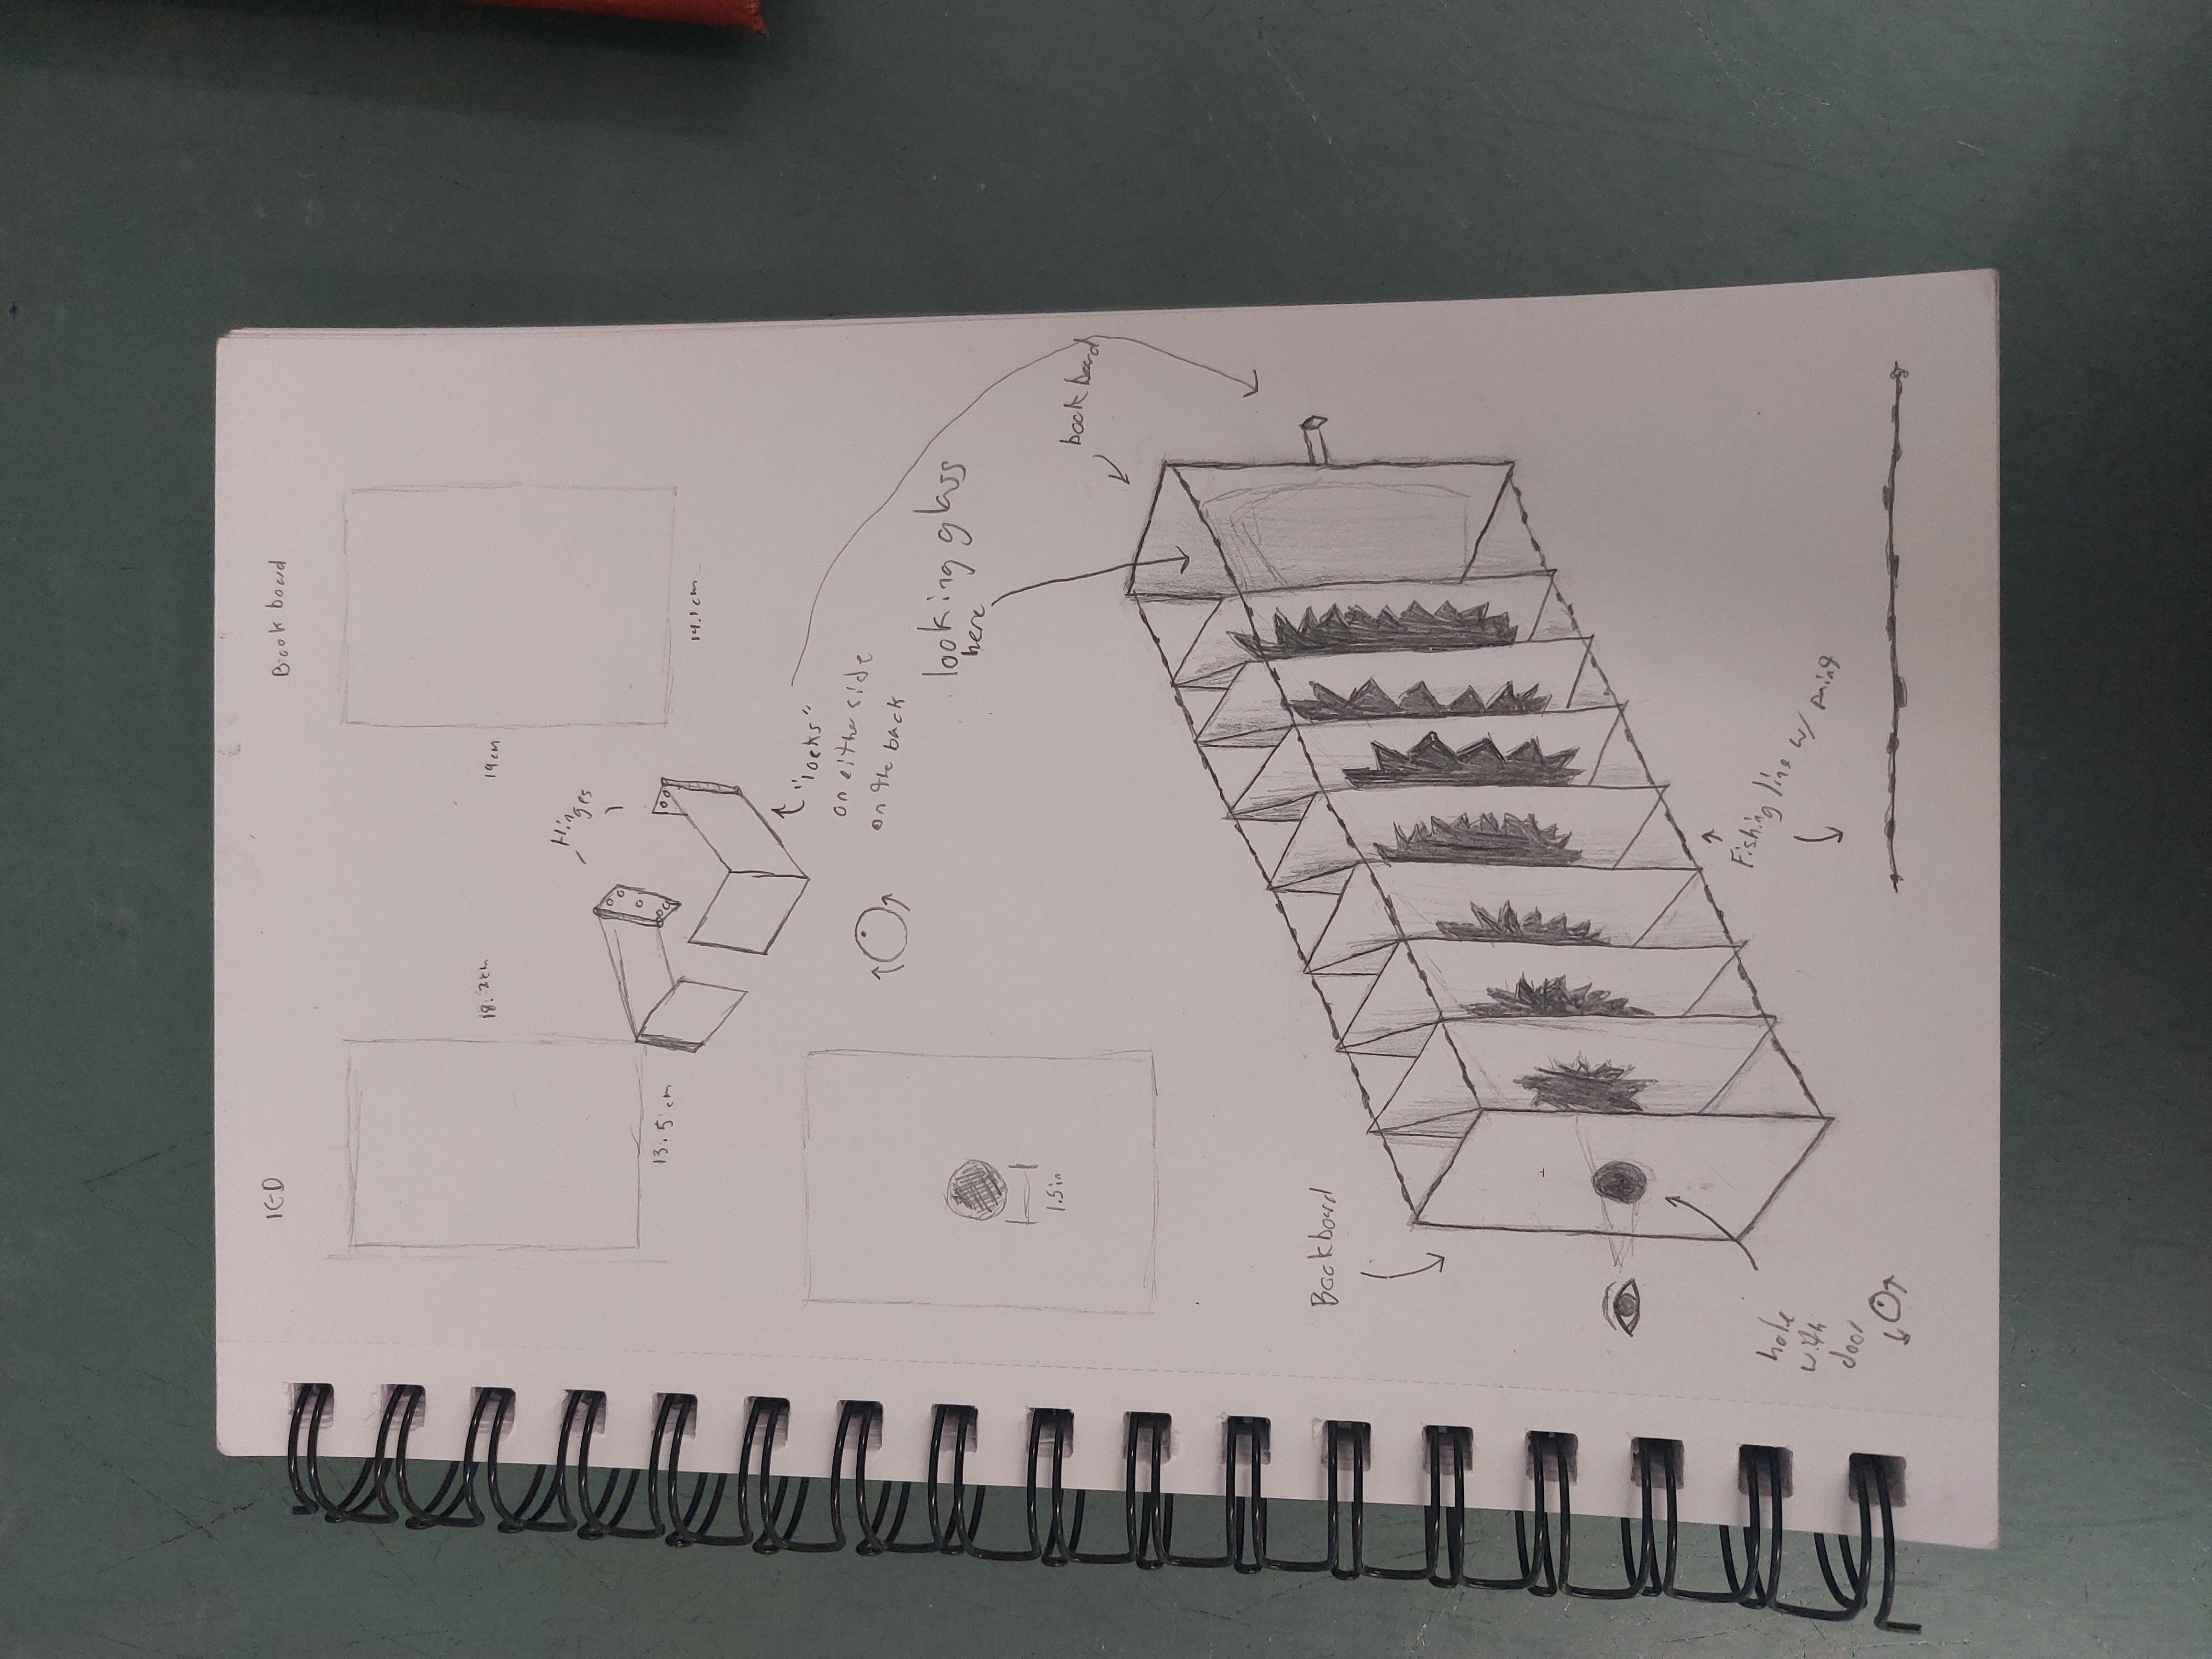 Book board
18.2cm
19cm
Hinges
13.5cm
14.1cm
"locks"
on either side
on the back
looking glass
here
1.5in
book board
Bookboard
hole
with
door
Fishing line w/ paint